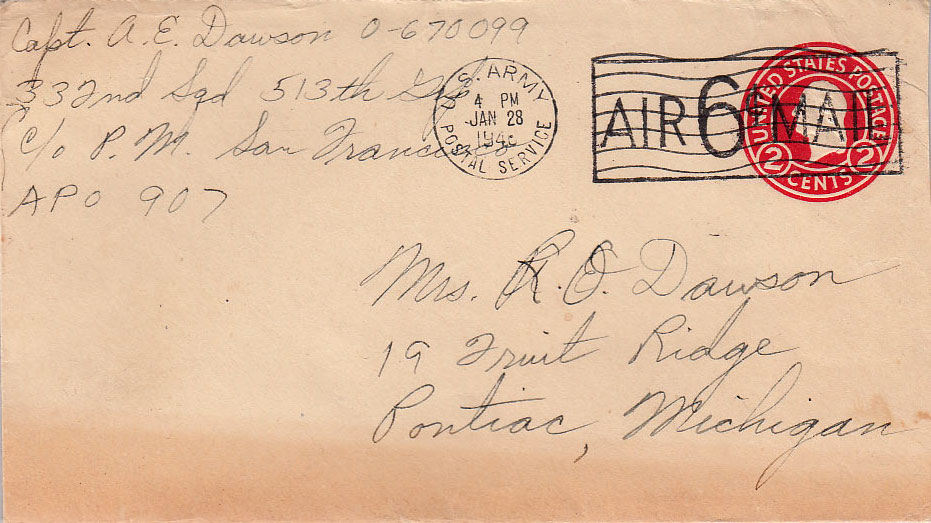 Capt. A. E. Dawson 0-670099
332nd Sqd 513th
c/o P. M. San Francisco
APO 907
U. S. ARMY
4 PM
JAN 28
POSTAL SERVICE
AIR 6¢ MAIL
UNITED STATES POSTAGE
2 2
CENTS
Mrs. R. O. Dawson
19 Fruit Ridge
Pontiac, Michigan